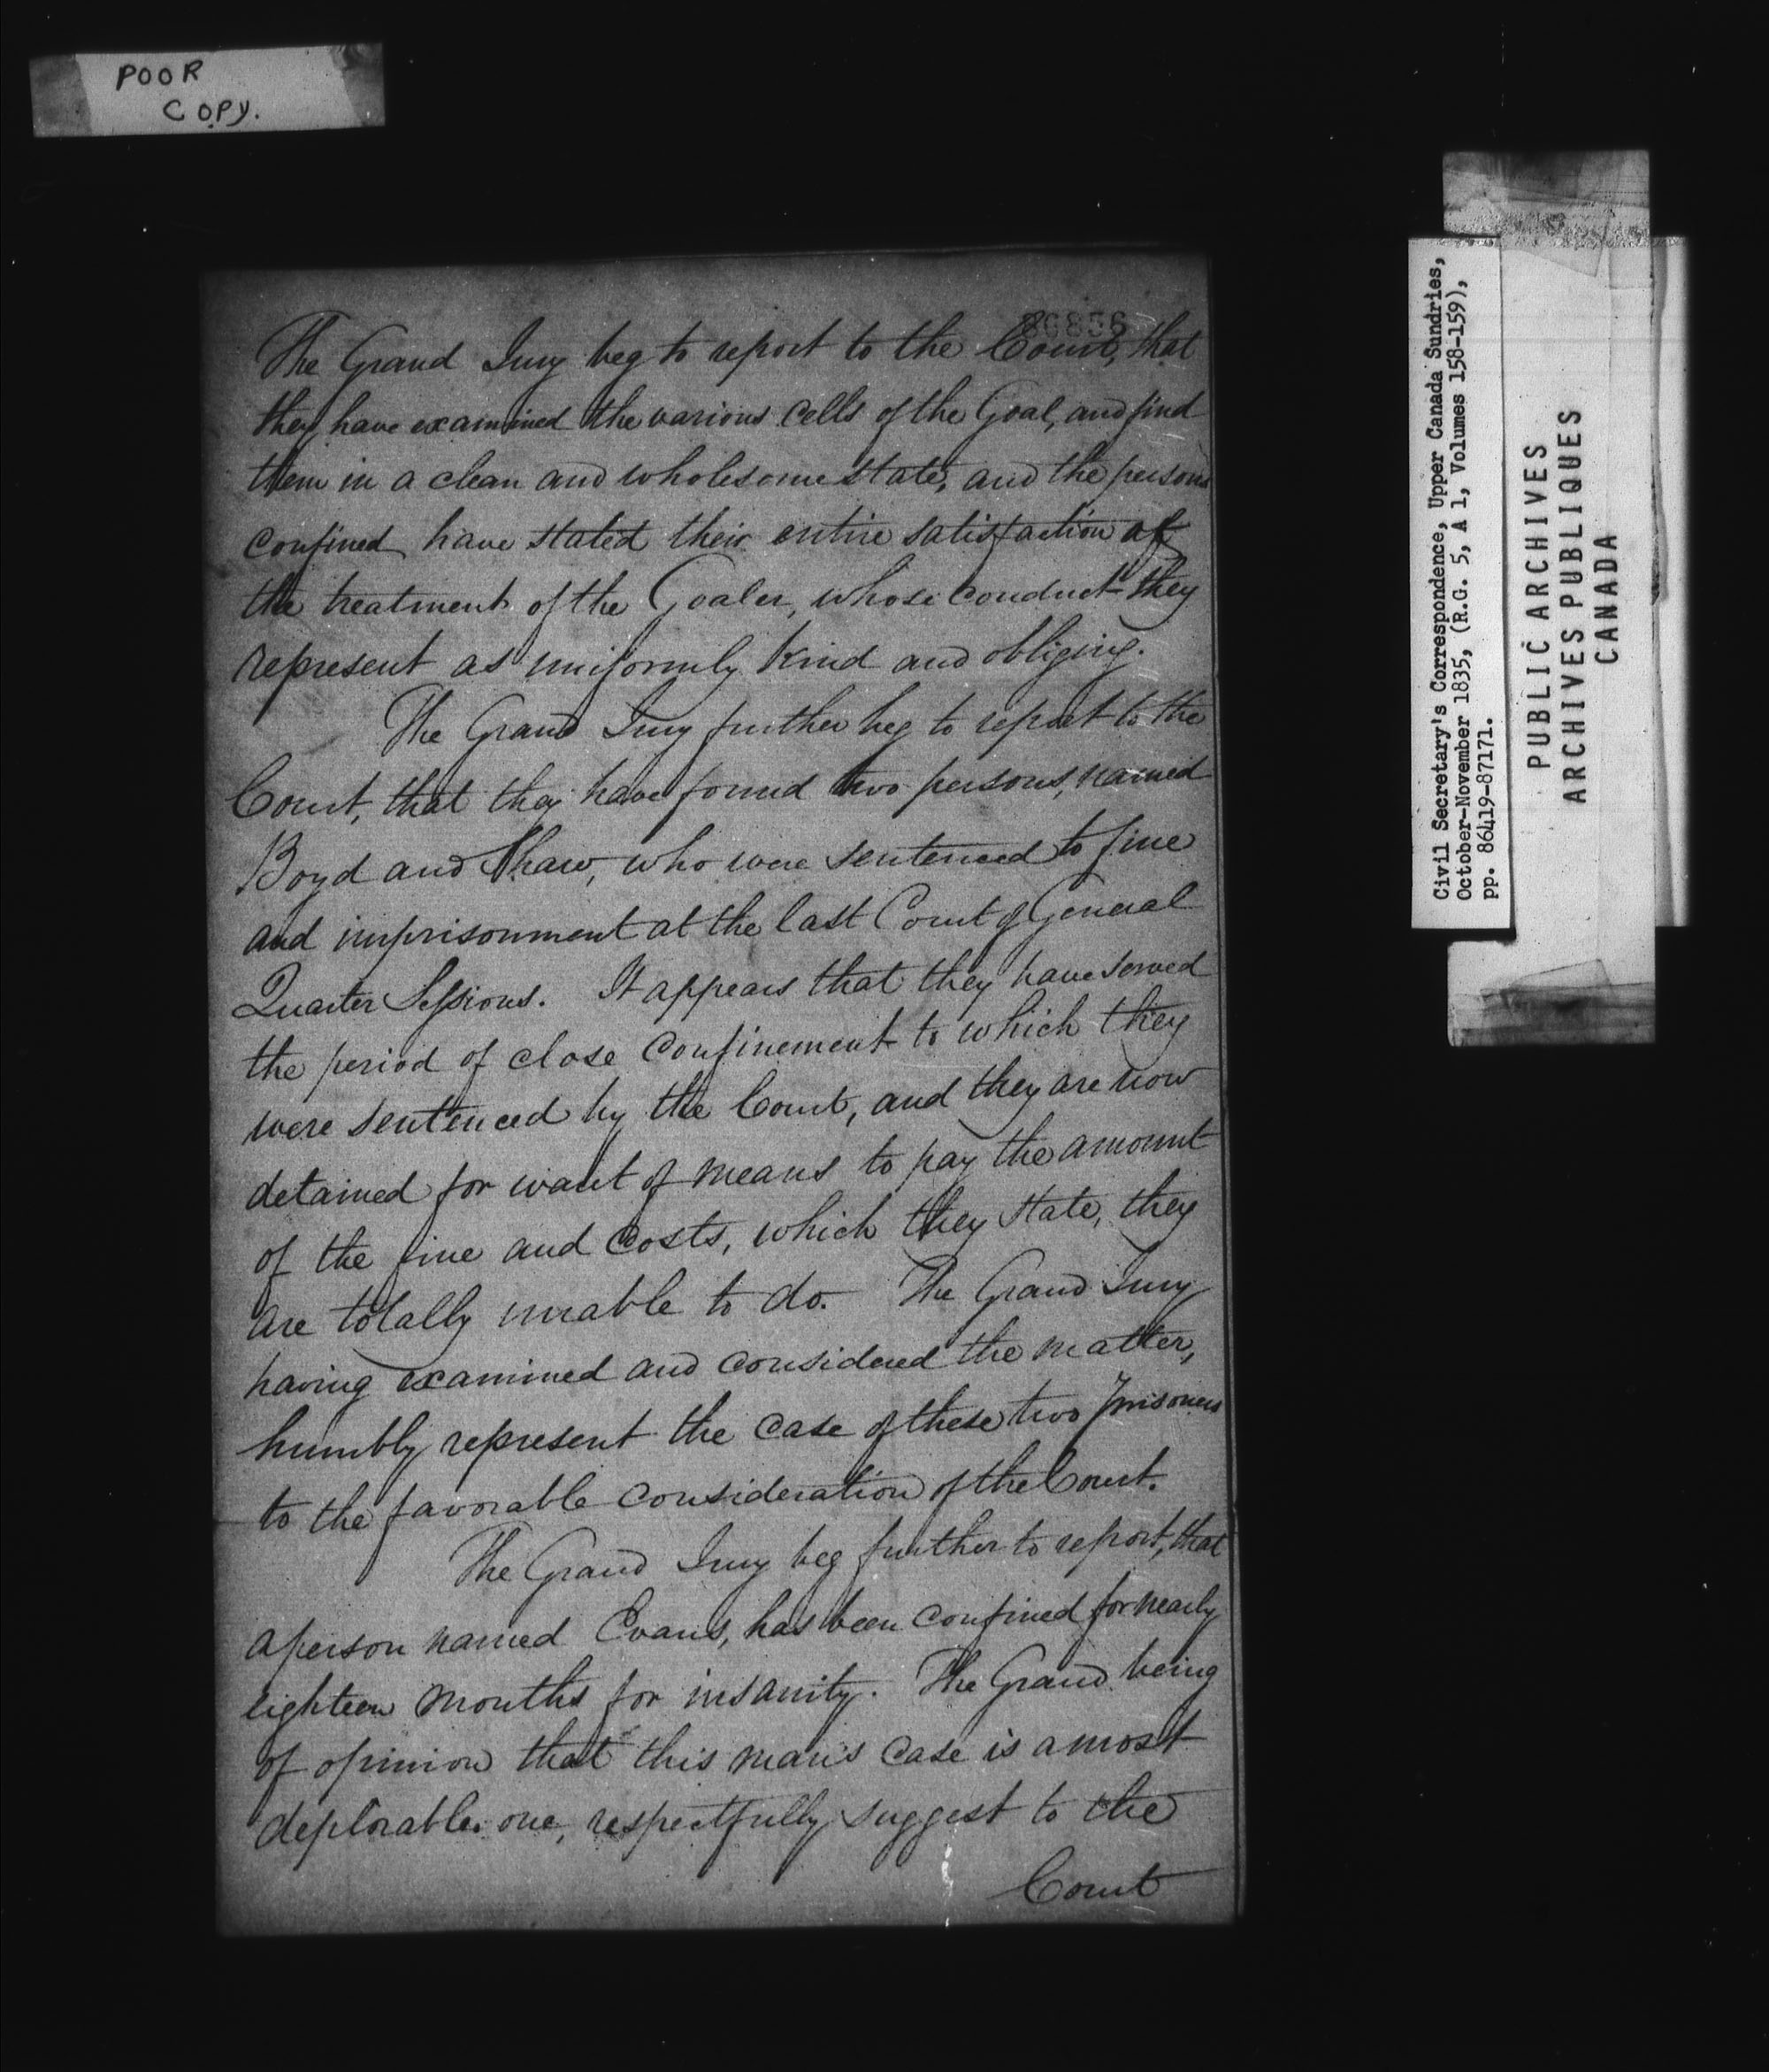 POOR
COPY.
86856
The Grand Jury beg to report to the Court, that
they have examined the various cells of the Goal, and find
them in a clean and wholesome state, and the persons
confined have stated their entire satisfaction at
the treatment of the Goaler, whose conduct they
represent as uniformly kind and obliging.
The Grand Jury further beg to report to the
Court, that they have found two persons, named
Boyd and Shaw, who were sentenced to fine
and imprisonment at the last Court of General
Quarter Sessions. It appears that they have served
the period of close confinement to which they
were sentenced by the Court, and they are now
detained for want of means to pay the amount
of the fine and costs, which they state, they
are totally unable to do. The Grand Jury
having examined and considered the matter,
humbly represent the case of these two prisoners
to the favorable consideration of the Court.
The Grand Jury beg further to report, that
a person named Evans, has been confined for nearly
eighteen months for insanity. The Grand being
of opinion that this man's case is a most
deplorable one, respectfully suggest to the
Court
Civil Secretary's Correspondence, Upper Canada Sundries,
October-November 1835, (R.G. 5, A 1, Volumes 158-159),
pp. 86419-87171.
PUBLIC ARCHIVES
ARCHIVES PUBLIQUES
CANADA